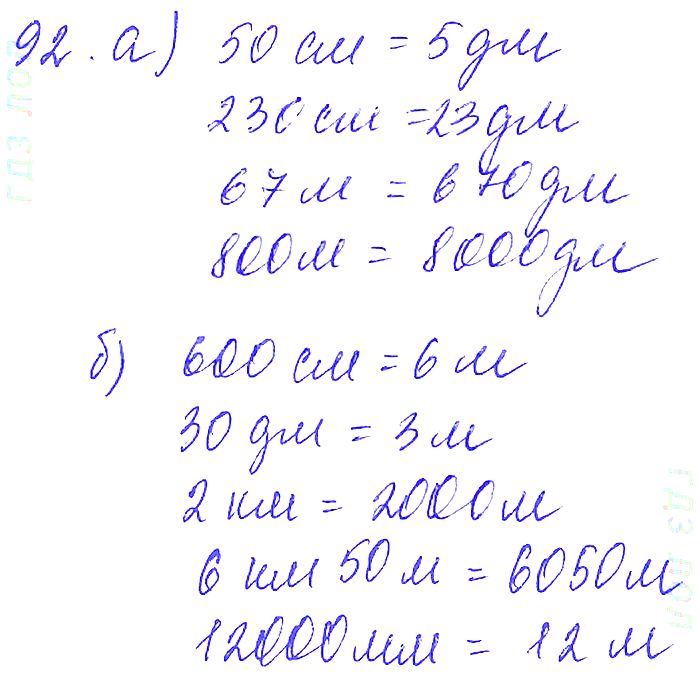 92. а) 50 см = 5 дм
230 см = 23 дм
67 м = 670 дм
800 м = 8000 дм
б) 600 см = 6 м
30 дм = 3 м
2 км = 2000 м
6 км 50 м = 6050 м
12000 мм = 12 м